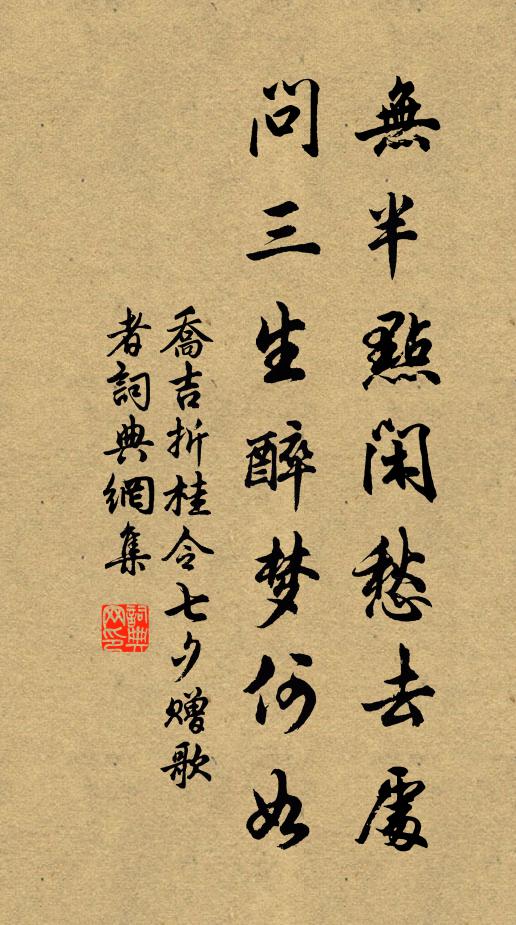 無半點閑愁去處
問三生醉梦何如
喬吉折桂令七夕赠歌
者詞典網集
詞典網印